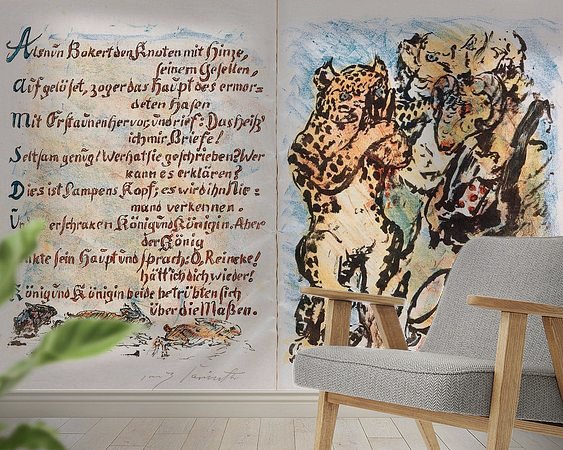 Als nun Bokert den Knoten mit Hinze,
seinem Gesellen,
Aufgelöset, zog er das Haupt des ermor=
deten Hasen
Mit Erstaunen hervor, und rief: Das heiß'
ich mir Briefe!
Seltsam genug! Wer hat sie geschrieben? Wer
kann es erklären?
Dies ist Lampens Kopf; es wird ihn Nie=
mand verkennen.
erschraken König und Königin. Aber
der König
sein Haupt und sprach: O, Reineke!
hätt ich dich wieder!
König und Königin beide betrübten sich
über die Maßen.